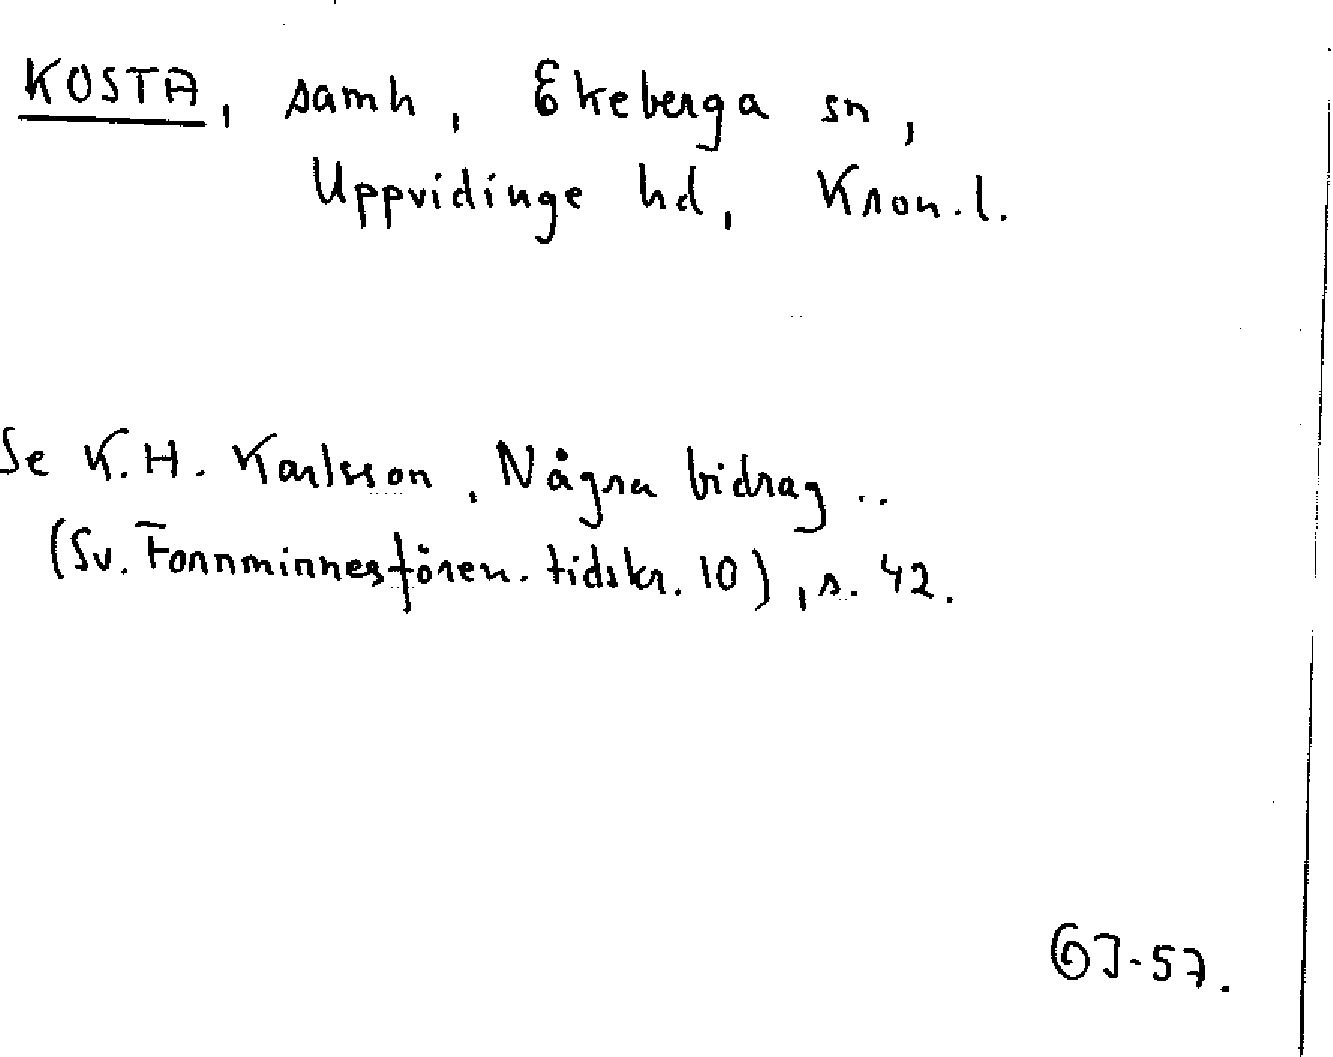 KOSTA, samh, Ekeberga sn,
Uppvidinge hd, Kron.l.
Se K.H. Karlsson, Några bidrag ..
(Sv. Fornminnesfören. tidskr. 10), s. 42.
GJ-57.